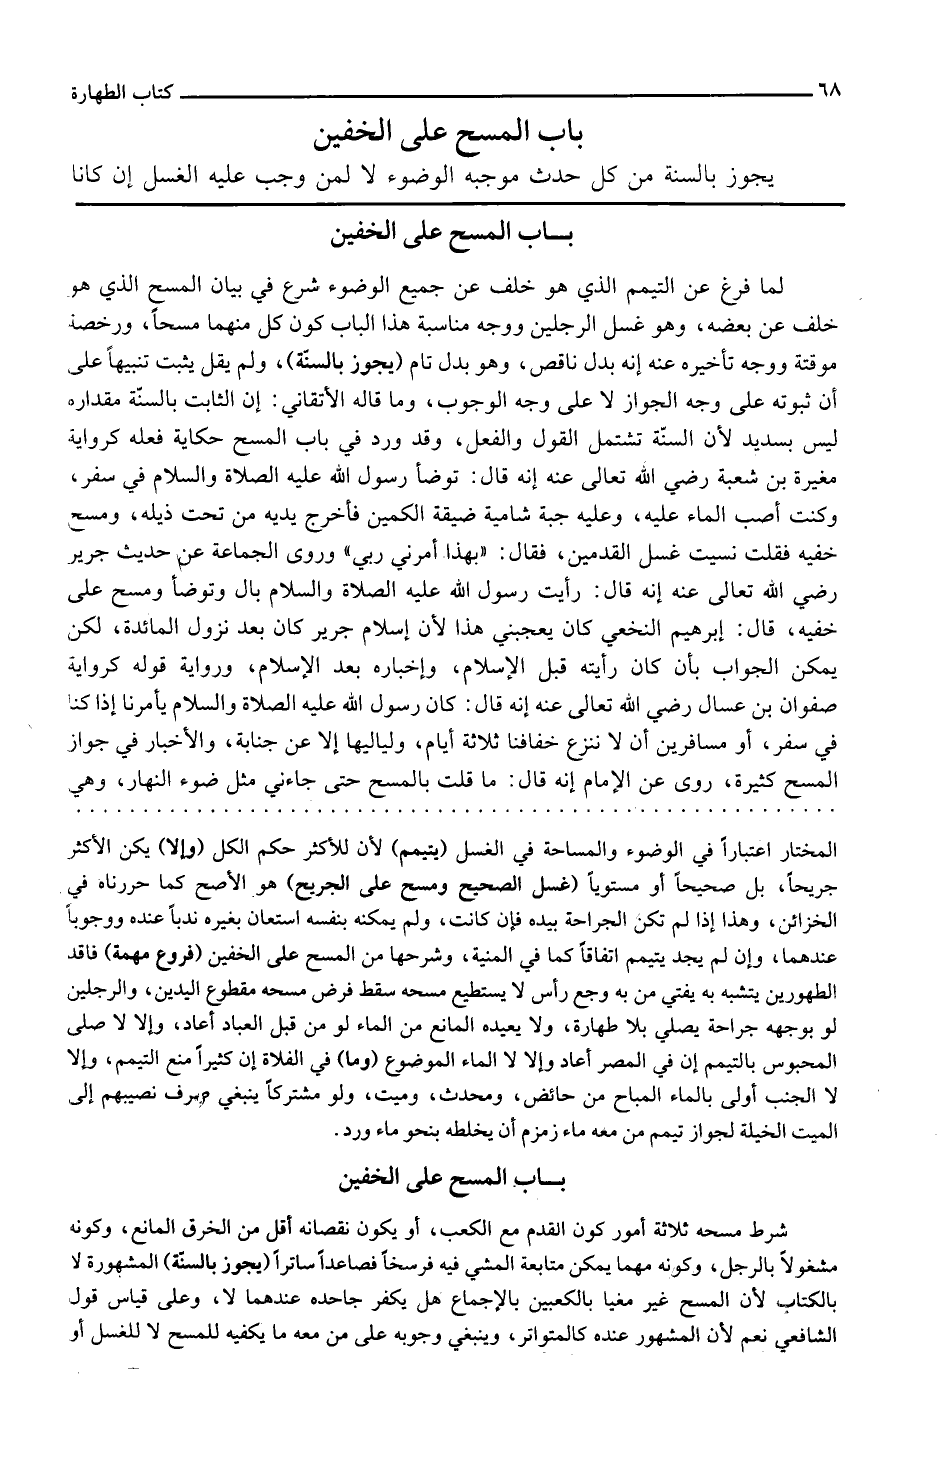 ٦٨ كتاب الطهارة
باب المسح على الخفين
يجوز بالسنة من كل حدث موجبه الوضوء لا لمن وجب عليه الغسل إن كانا
بـــاب المسح على الخفين
لما فرغ عن التيمم الذي هو خلف عن جميع الوضوء شرع في بيان المسح الذي هو
خلف عن بعضه، وهو غسل الرجلين ووجه مناسبة هذا الباب كون كل منهما مسحاً، ورخصة
موقتة ووجه تأخيره عنه إنه بدل ناقص، وهو بدل تام (يجوز بالسنّة)، ولم يقل يثبت تنبيهاً على
أن ثبوته على وجه الجواز لا على وجه الوجوب، وما قاله الأتقاني: إن الثابت بالسنّة مقداره
ليس بسديد لأن السنّة تشتمل القول والفعل، وقد ورد في باب المسح حكاية فعله كرواية
مغيرة بن شعبة رضي الله تعالى عنه إنه قال: توضأ رسول الله عليه الصلاة والسلام في سفر،
وكنت أصب الماء عليه، وعليه جبة شامية ضيقة الكمين فأخرج يديه من تحت ذيله، ومسح
خفيه فقلت نسيت غسل القدمين، فقال: «بهذا أمرني ربي» وروى الجماعة عن حديث جرير
رضي الله تعالى عنه إنه قال: رأيت رسول الله عليه الصلاة والسلام بال وتوضأ ومسح على
خفيه، قال: إبرهيم النخعي كان يعجبني هذا لأن إسلام جرير كان بعد نزول المائدة، لكن
يمكن الجواب بأن كان رأيته قبل الإسلام، وإخباره بعد الإسلام، ورواية قوله كرواية
صفوان بن عسال رضي الله تعالى عنه إنه قال: كان رسول الله عليه الصلاة والسلام يأمرنا إذا كنا
في سفر، أو مسافرين أن لا ننزع خفافنا ثلاثة أيام، ولياليها إلا عن جنابة، والأخبار في جواز
المسح كثيرة، روى عن الإمام إنه قال: ما قلت بالمسح حتى جاءني مثل ضوء النهار، وهي
المختار اعتباراً في الوضوء والمساحة في الغسل (يتيمم) لأن للأكثر حكم الكل (وإلا) يكن الأكثر
جريحاً، بل صحيحاً أو مستوياً (غسل الصحيح ومسح على الجريح) هو الأصح كما حررناه في
الخزائن، وهذا إذا لم تكن الجراحة بيده فإن كانت، ولم يمكنه بنفسه استعان بغيره ندباً عنده ووجوباً
عندهما، وإن لم يجد يتيمم اتفاقاً كما في المنية، وشرحها من المسح على الخفين (فروع مهمة) فاقد
الطهورين يتشبه به يفتي من به وجع رأس لا يستطيع مسحه سقط فرض مسحه مقطوع اليدين، والرجلين
لو بوجهه جراحة يصلي بلا طهارة، ولا يعيده المانع من الماء لو من قبل العباد أعاد، وإلا لا صلى
المحبوس بالتيمم إن في المصر أعاد وإلا لا الماء الموضوع (وما) في الفلاة إن كثيراً منع التيمم، وإلا
لا الجنب أولى بالماء المباح من حائض، ومحدث، وميت، ولو مشتركاً ينبغي صرف نصيبهم إلى
الميت الخيلة لجواز تيمم من معه ماء زمزم أن يخلطه بنحو ماء ورد.
بـــاب المسح على الخفين
شرط مسحه ثلاثة أمور كون القدم مع الكعب، أو يكون نقصانه أقل من الخرق المانع، وكونه
مشغولاً بالرجل، وكونه مهما يمكن متابعة المشي فيه فرسخاً فصاعداً ساتراً (يجوز بالسنّة) المشهورة لا
بالكتاب لأن المسح غير مغيا بالكعبين بالإجماع هل يكفر جاحده عندهما لا، وعلى قياس قول
الشافعي نعم لأن المشهور عنده كالمتواتر، وينبغي وجوبه على من معه ما يكفيه للمسح لا للغسل أو